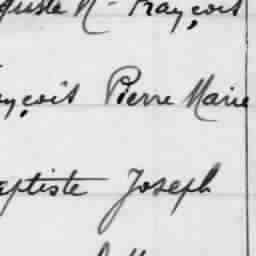 guste M - Françoit
nçoit Pierre Marie
aptiste Joseph